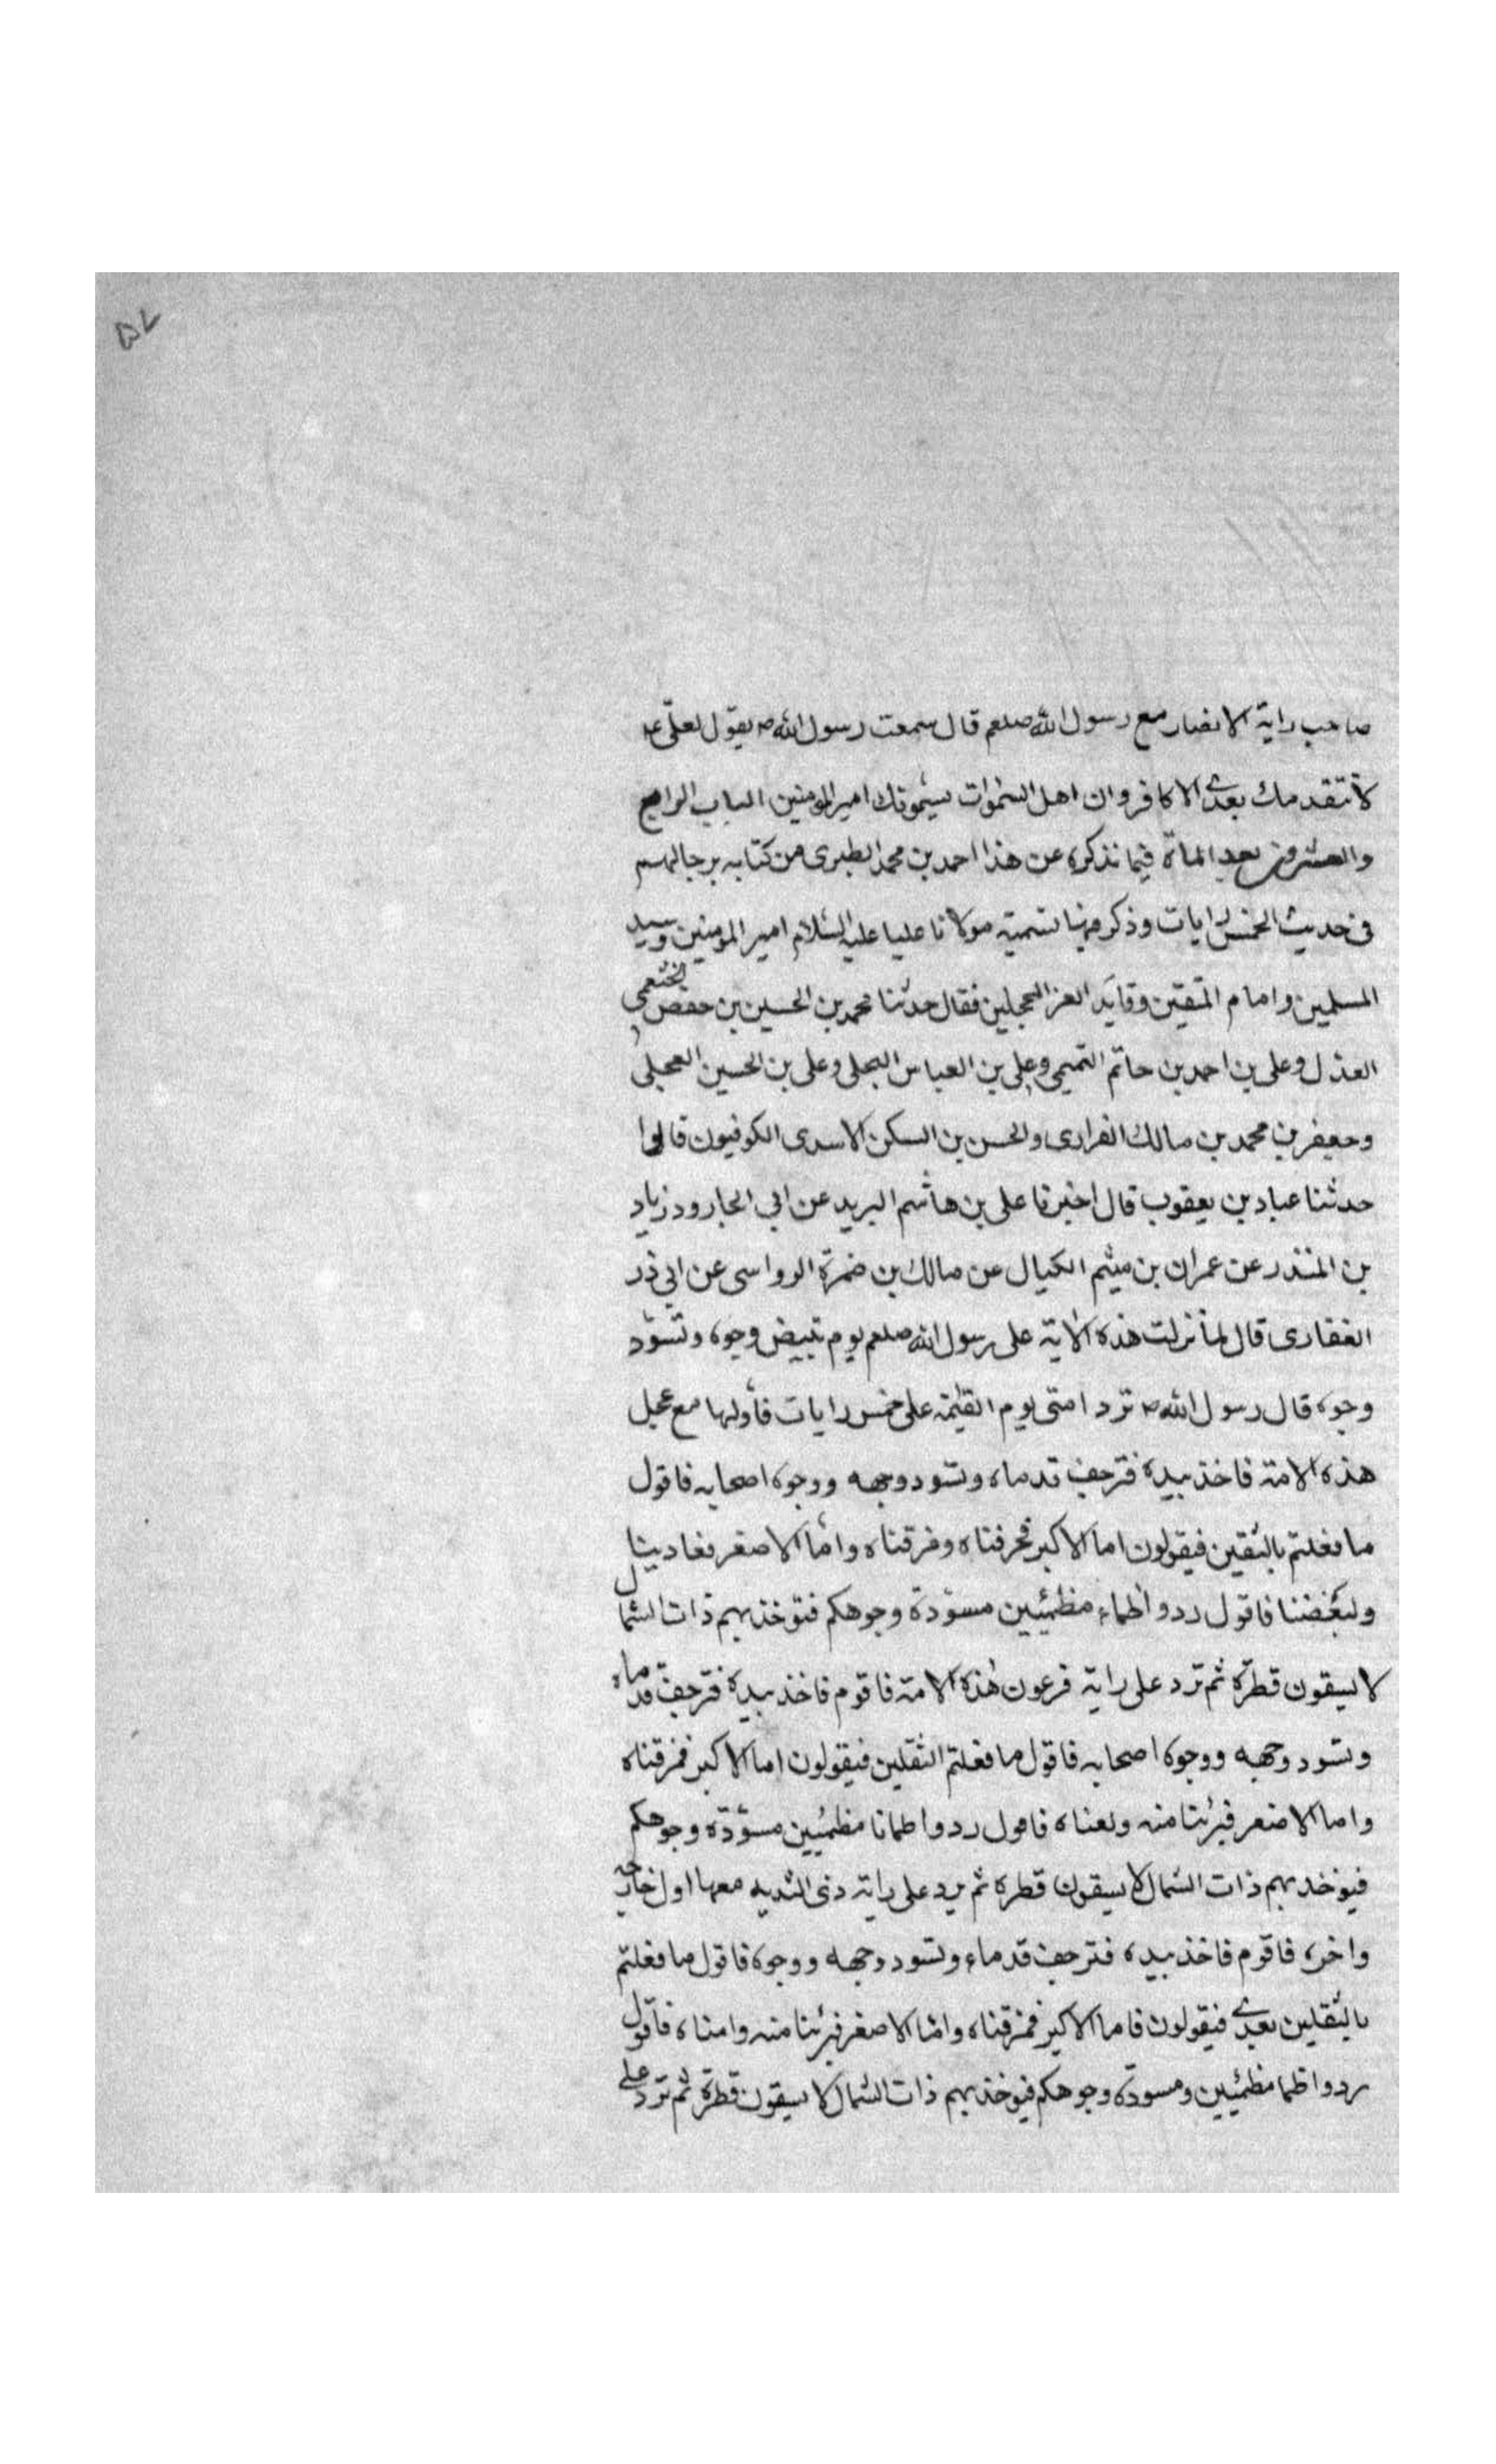 ٥٧
صاحب راية الانصار مع رسول الله صلعم قال سمعت رسول الله ص يقول لعلى ع
لا تتقدمك بعدى الا كافر وان اهل السموات يسمونك امير المومنين الباب الرابع
والعشرون بعد الماة فيما نذكره عن هذا احمد بن محمد الطبرى من كتابه برجالهم
فى حديث الخمس رايات وذكر فيها تسمية مولانا عليا عليه السلام امير المومنين وسيد
المسلمين وامام المتقين وقايد الغر المحجلين فقال حدثنا محمد بن الحسين بن حفص الخثعمى
العدل وعلى بن احمد بن حاتم التميمى وعلى بن العباس البجلى وعلى بن الحسين العجلى
وجعفر بن محمد بن مالك الفزارى والحسن بن السكن الاسدى الكوفيون قالوا
حدثنا عباد بن يعقوب قال اخبرنا على بن هاشم البريد عن ابى الجارود زياد
بن المنذر عن عمران بن ميثم الكيال عن مالك بن ضمرة الرواسى عن ابى ذر
الغفارى قال لما نزلت هذه الاية على رسول الله صلعم يوم تبيض وجوه وتسود
وجوه قال رسول الله ص ترد امتى يوم القيمة على خمس رايات فأولها مع عجل
هذه الامة فاخذ بيده فترجف قدماه وتسود وجهه ووجوه اصحابه فاقول
ما فعلتم بالثقلين فيقولون اما الاكبر فحرفناه ومزقناه واما الاصغر فعادينا
ولبغضنا فاقول ردوا ظماء مظمئين مسودة وجوهكم فتوخذ بهم ذات الشمال
لا يسقون قطرة ثم ترد على راية فرعون هذه الامة فاقوم فاخذ بيده فترجف قدماه
وتسود وجهه ووجوه اصحابه فاقول ما فعلتم الثقلين فيقولون اما الاكبر فمزقناه
واما الاصغر فبرئنا منه ولعناه فاقول ردوا ظمانا مظمئين مسودة وجوهكم
فيوخذ بهم ذات الشمال لا يسقون قطرة ثم يرد على راية ذى الثديه معها اول خارجة
واخره فاقوم فاخذ بيده فترجف قدماء وتسود وجهه ووجوه فاقول ما فعلتم
بالثقلين بعدى فيقولون فاما الاكبر فمزقناه واما الاصغر فبرئنا منه وامناه فاقول
ردوا ظما مظمئين ومسودة وجوهكم فيوخذ بهم ذات الشمال لا يسقون قطرة ثم ترد على